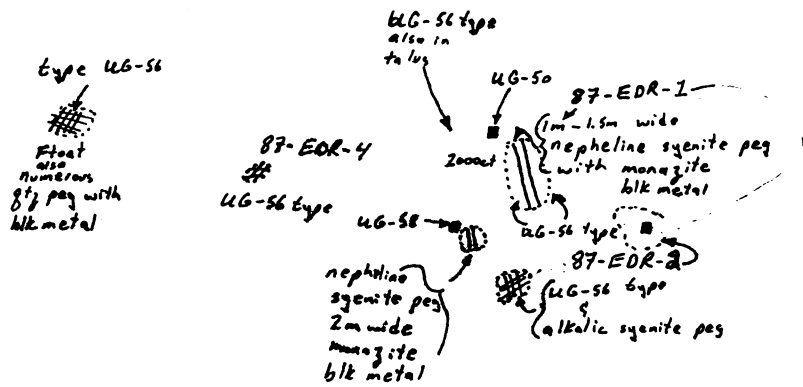 type UG-56
Float
also
numerous
qtz peg with
blk metal
87-EDR-4
UG-56 type
UG-56 type
also in
talus
UG-50
2000ct
87-EDR-1
1m-1.5m wide
nepheline syenite peg
with monazite
blk metal
UG-56 type
UG-58
nepheline
syenite peg
2m wide
monazite
blk metal
87-EDR-2
UG-56 type
&
alkalic syenite peg